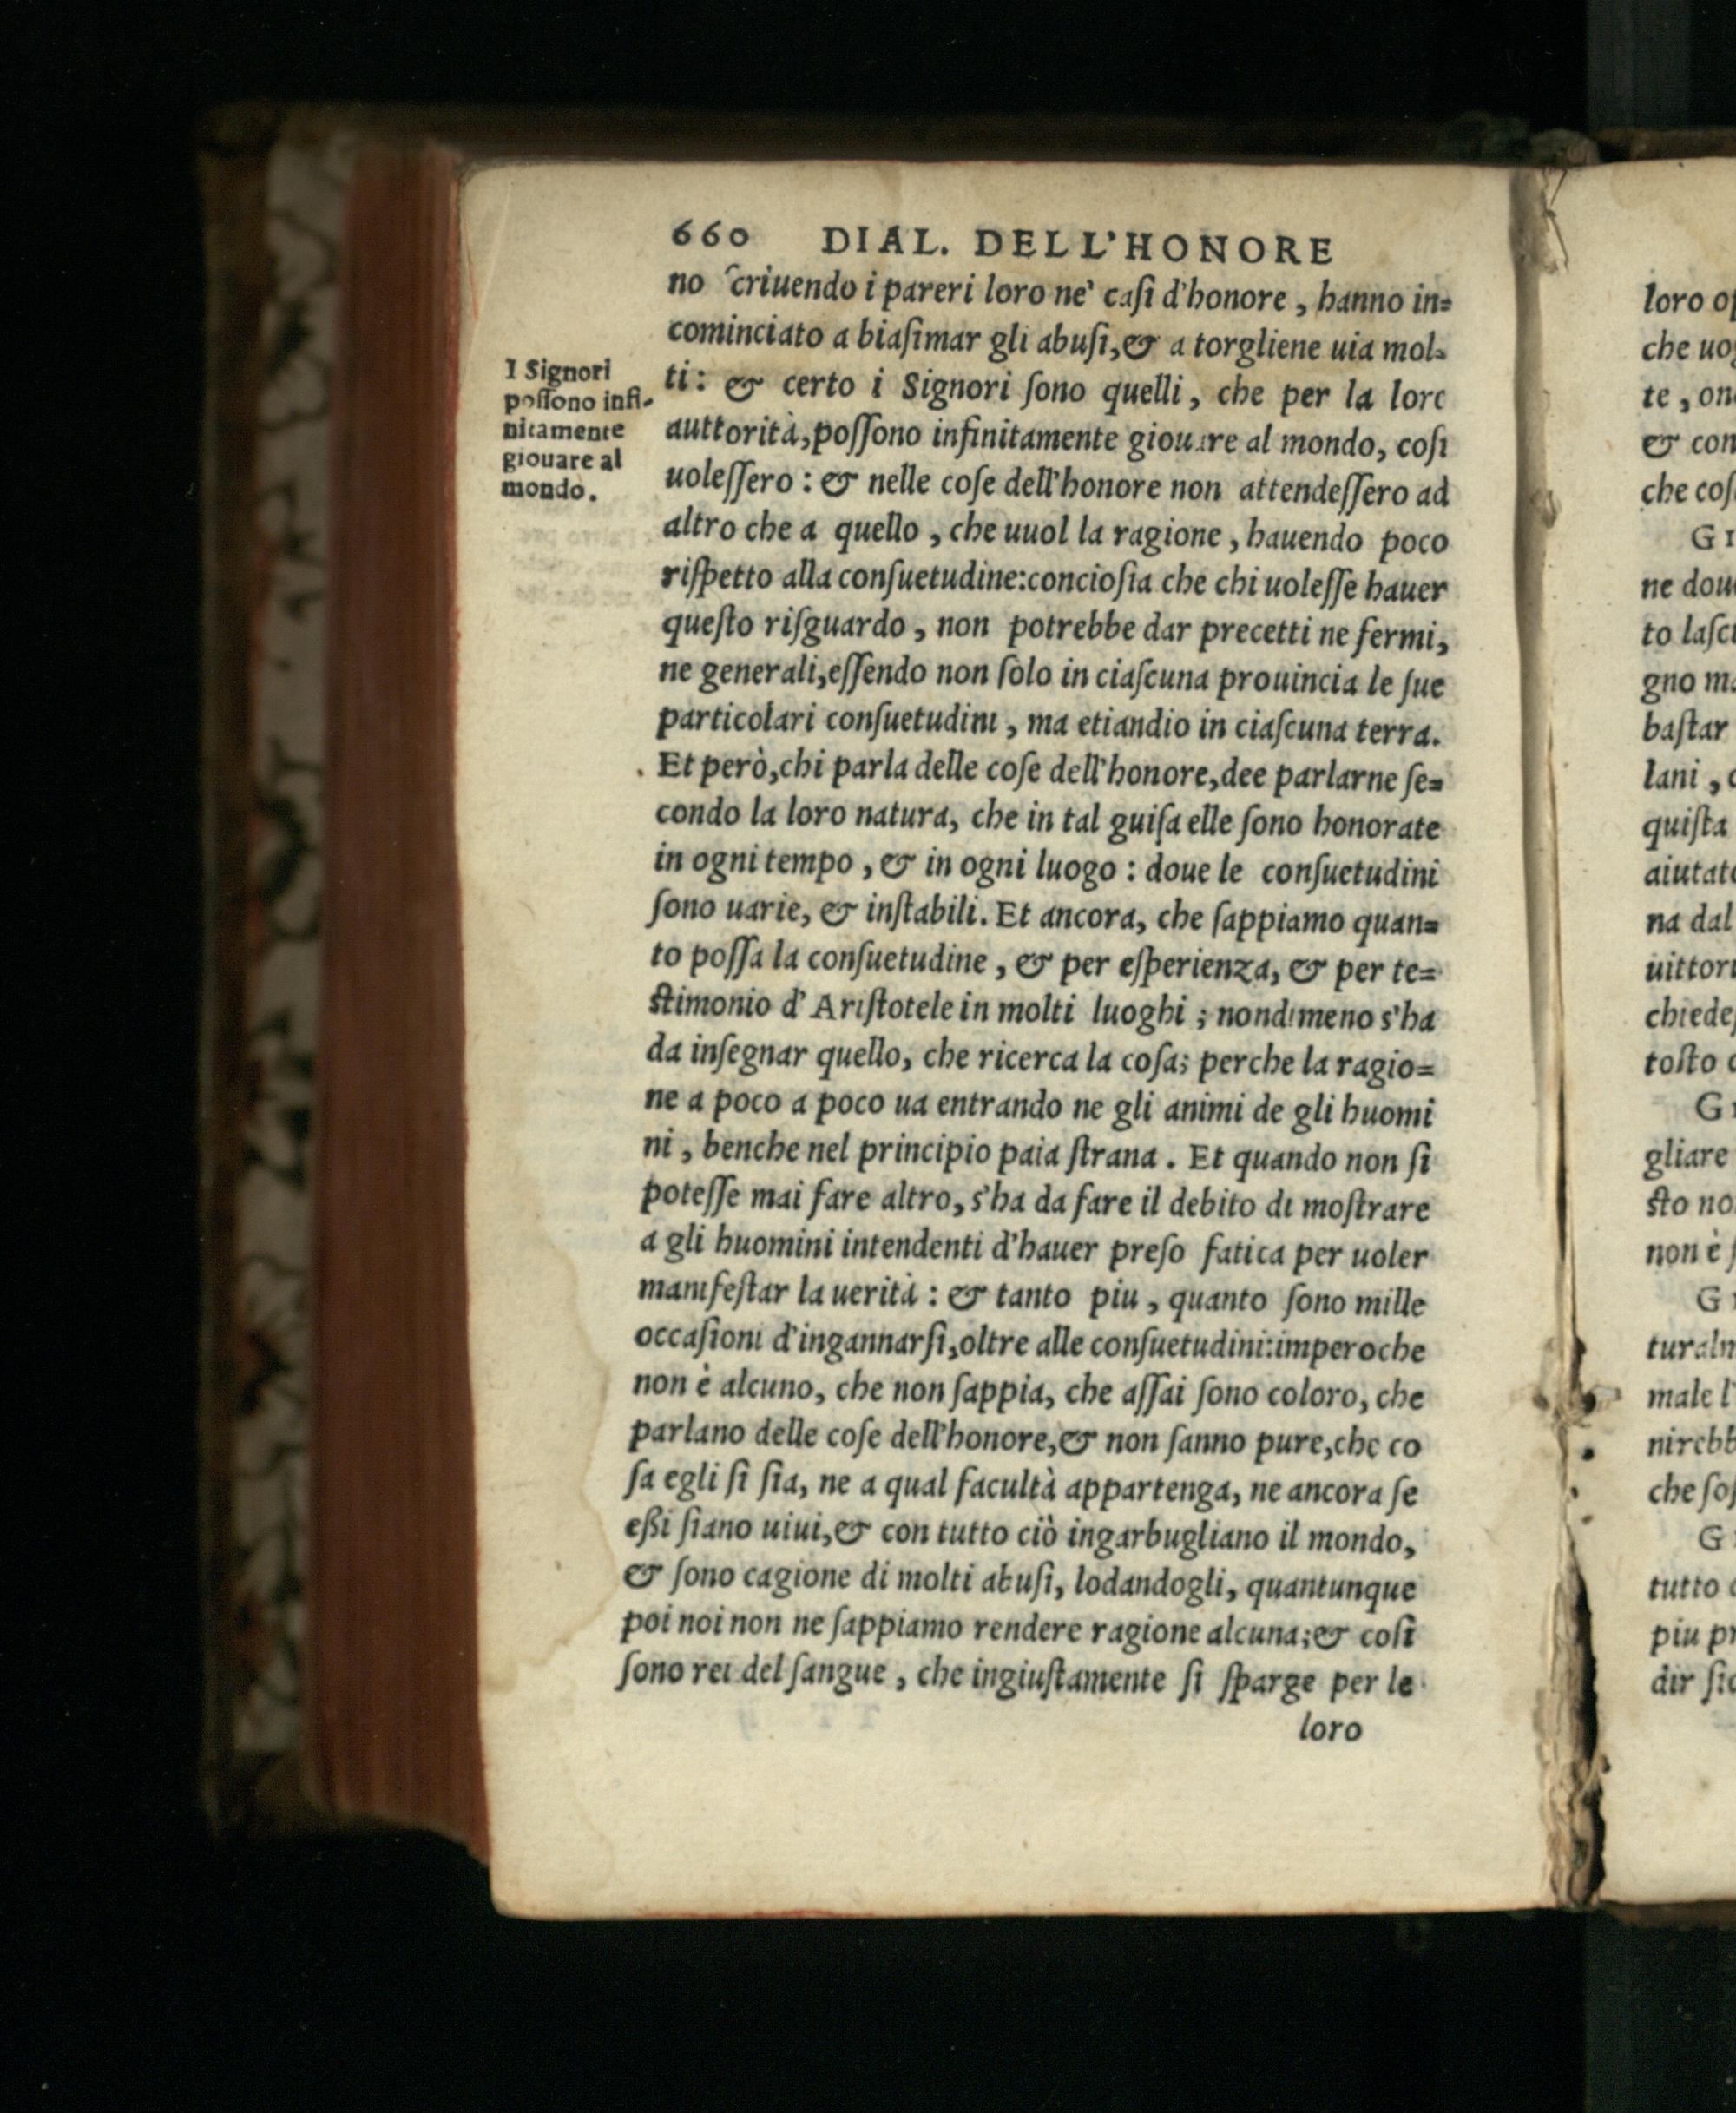 660 DIAL. DELL'HONORE
no ſcriuendo i pareri loro ne' caſi d'honore, hanno in=
cominciato a biaſimar gli abuſi,& a torgliene uia mol=
ti: & certo i Signori ſono quelli, che per la loro
auttorità,poſſono infinitamente giouare al mondo, coſi
uoleſſero: & nelle coſe dell'honore non attendeſſero ad
altro che a quello, che uuol la ragione, hauendo poco
riſpetto alla conſuetudine:concioſia che chi uoleſſe hauer
queſto riſguardo, non potrebbe dar precetti ne fermi,
ne generali,eſſendo non ſolo in ciaſcuna prouincia le ſue
particolari conſuetudini, ma etiandio in ciaſcuna terra.
Et però,chi parla delle coſe dell'honore,dee parlarne ſe=
condo la loro natura, che in tal guiſa elle ſono honorate
in ogni tempo, & in ogni luogo: doue le conſuetudini
ſono uarie, & inſtabili. Et ancora, che ſappiamo quan=
to poſſa la conſuetudine, & per eſperienza, & per te=
ſtimonio d'Ariſtotele in molti luoghi; nondimeno s'ha
da inſegnar quello, che ricerca la coſa; perche la ragio=
ne a poco a poco ua entrando ne gli animi de gli huomi
ni, benche nel principio paia ſtrana. Et quando non ſi
poteſſe mai fare altro, s'ha da fare il debito di moſtrare
a gli huomini intendenti d'hauer preſo fatica per uoler
manifeſtar la uerità: & tanto piu, quanto ſono mille
occaſioni d'ingannarſi,oltre alle conſuetudini:imperoche
non è alcuno, che non ſappia, che aſſai ſono coloro, che
parlano delle coſe dell'honore,& non ſanno pure,che co
ſa egli ſi ſia, ne a qual facultà appartenga, ne ancora ſe
eßi ſiano uiui,& con tutto ciò ingarbugliano il mondo,
& ſono cagione di molti abuſi, lodandogli, quantunque
poi noi non ne ſappiamo rendere ragione alcuna;& coſi
ſono rei del ſangue, che ingiuſtamente ſi ſparge per le
loro
I Signori
poſſono infi-
nitamente
giouare al
mondo.
loro
che
te, 
& 
che
ne
to
gno
baſtar
lani,
quiſta
na dal
toſto
gliare
ſto
non è
male
tutto
piu
dir